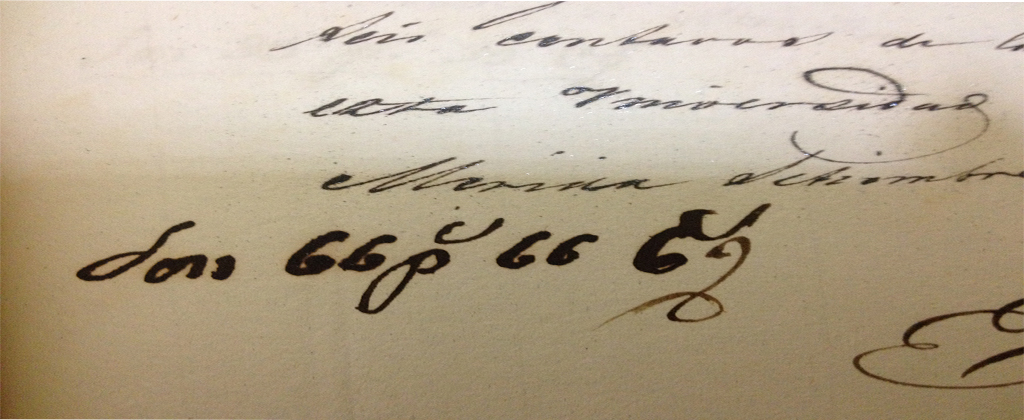 seis centavos de
esta Universidad
Merida Setiembre
Son 66 p 66